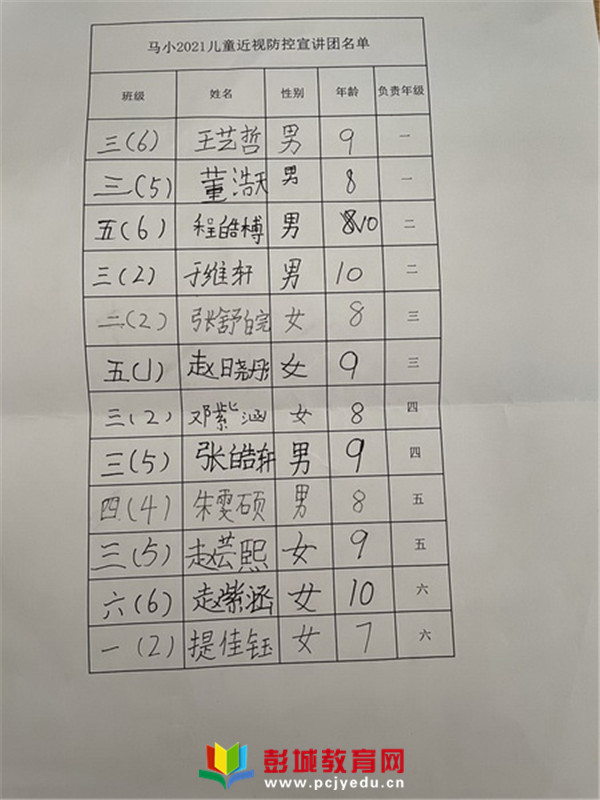 马小2021儿童近视防控宣讲团名单
班级 姓名 性别 年龄 负责年级
三(6) 王艺哲 男 9 一
三(5) 董浩天 男 8 一
五(6) 程皓榑 男 10 二
三(2) 于维轩 男 10 二
二(2) 张舒皖 女 8 三
五(1) 赵日晓彤 女 9 三
三(2) 邓紫涵 女 8 四
三(5) 张皓轩 男 9 四
四(4) 朱雯硕 男 8 五
三(5) 赵芸熙 女 9 五
六(6) 赵紫涵 女 10 六
一(2) 提佳钰 女 7 六
彭城教育网
www.pcjyedu.cn